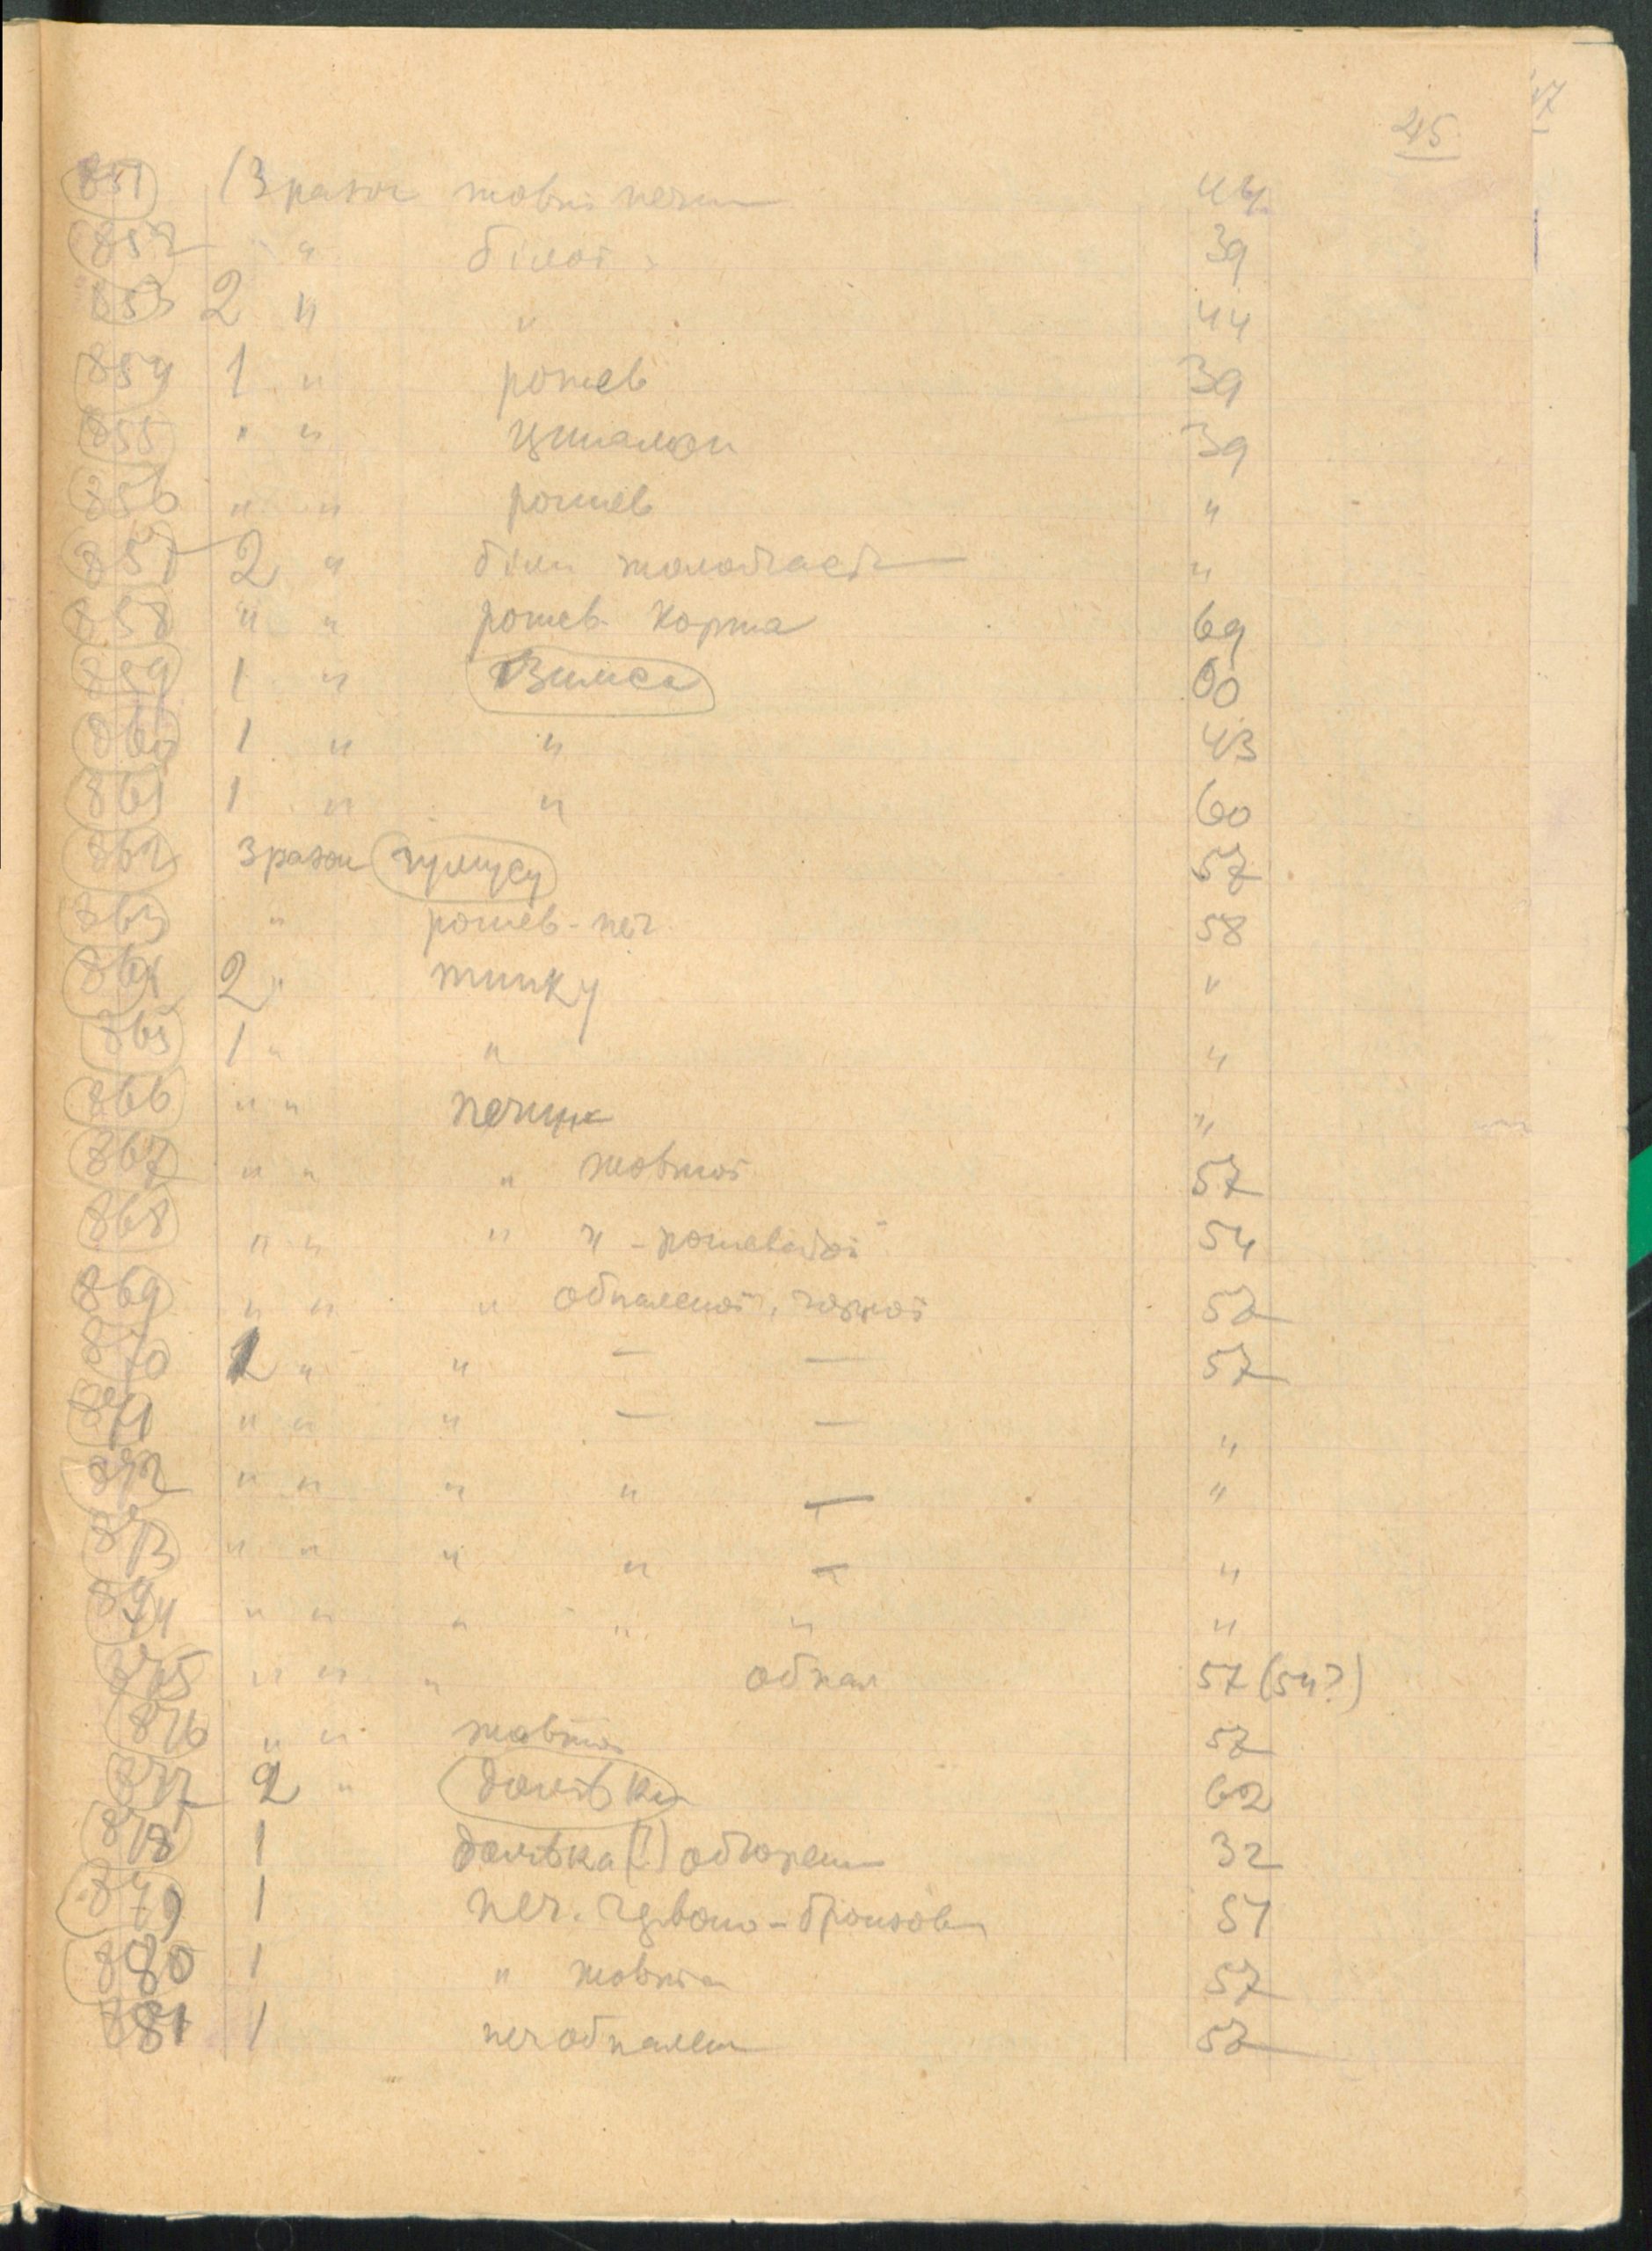 45
851 1 Зразок жовтої печини 44
852 " " білої " 39
853 2 " " 44
854 1 " рожев 39
855 " " 39
856 " " рожев "
857 2 " білої "
858 " " рожев. Коржа 69
859 1 " Вимса 60
860 1 " " 43
861 1 " " 60
862 Зразок гумусу 57
863 " рожев-печ 58
864 2 " тинку "
865 1 " " "
866 " " печини "
867 " " " жовтої 57
868 " " " " - рожеватої 54
869 " " " обпаленої, чорної 57
870 1 " " — — 57
871 " " " — — "
872 " " " " — "
873 " " " " — "
874 " " " " " "
875 " " " обпал 57 (54?)
876 " " жовтої 57
877 2 " долівки 62
878 1 долівка (?) обгорен 32
879 1 печ. червоно-бронзов 51
880 1 " жовта 57
881 1 печ обпален 57